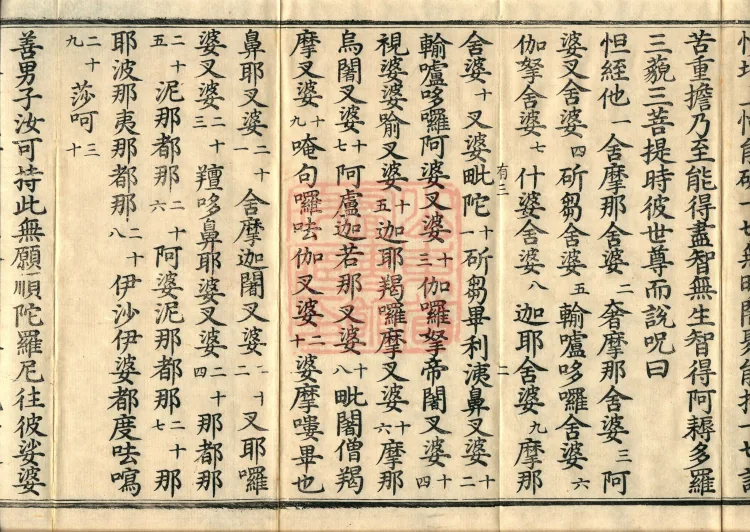 苦重擔乃至能得盡智無生智得阿耨多羅
三藐三菩提時彼世尊而說呪曰
怛絰他一舍摩那舍婆二奢摩那舍婆三阿
婆叉舍婆四斫芻舍婆五輸嚧哆囉舍婆六
伽拏舍婆七什婆舍婆八迦耶舍婆九摩那
有三
二
舍婆十叉婆毗陀十一斫芻畢利洟鼻叉婆十二
輸嚧哆囉阿婆叉婆十三伽囉拏帝闍叉婆十四
視婆婆喻叉婆十五迦耶羯囉摩叉婆十六摩那
烏闍叉婆十七阿盧迦若那叉婆十八毗闍僧羯
摩叉婆十九唵句囉呿伽叉婆二十婆摩嘍畢也
鼻耶叉婆二十一舍摩迦闍叉婆二十二叉耶囉
婆叉婆二十三羶哆鼻耶婆叉婆二十四那都那
二十五泥那都那二十六阿婆泥那都那二十七那
耶波那夷那都那二十八伊沙伊婆都度呿鳴
二十九莎呵三十
善男子汝可持此無願順陀羅尼往彼娑婆